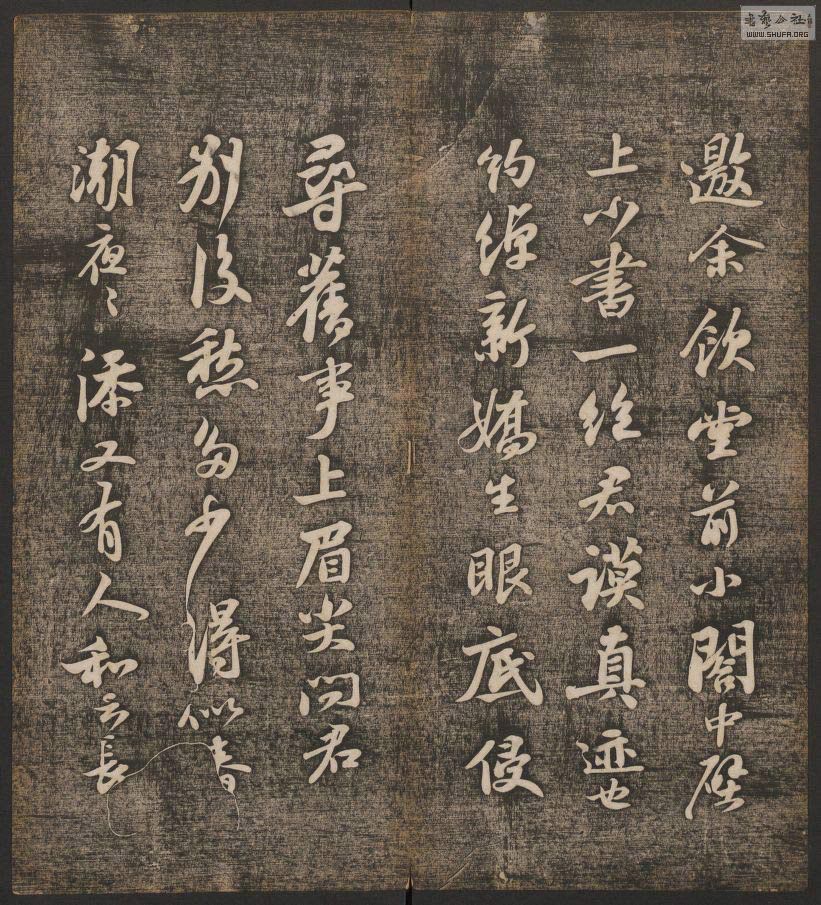 邀余飲堂前小閣中壁
上小書一絕君謨真迹也
約綽新嬌生眼底侵
尋舊事上眉尖問君
別後愁多少得似春
潮夜〻添又有人和云長
書藝公社
WWW.SHUFA.ORG